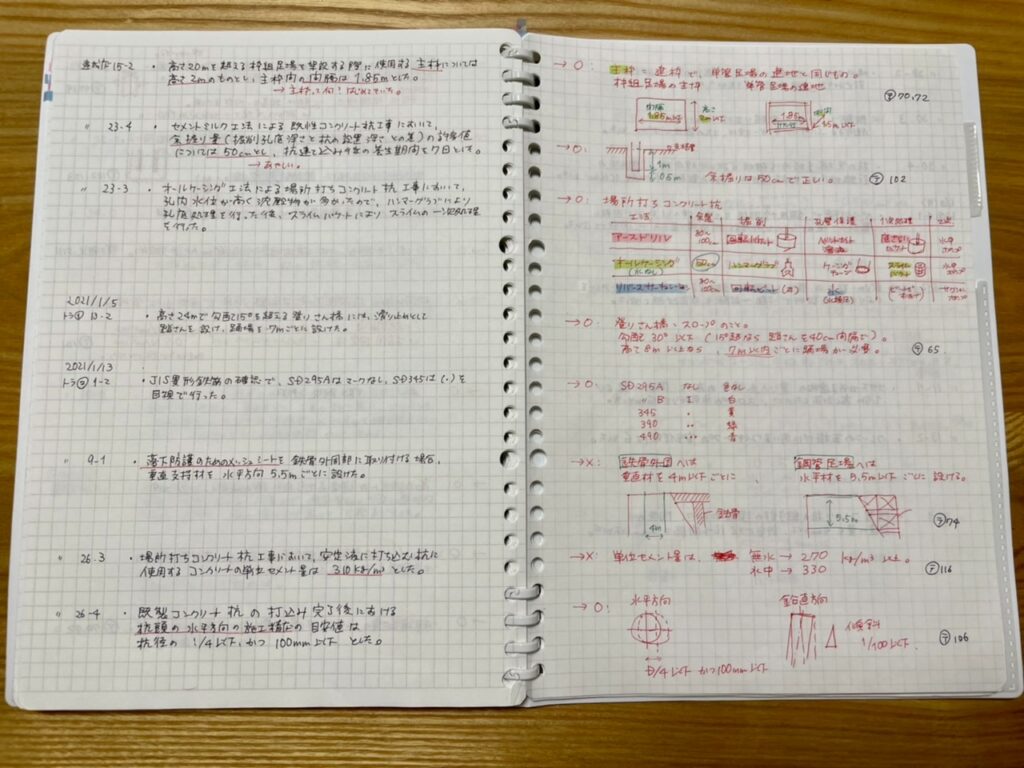 15-2 ・高さ20mを超える枠組足場を架設する際に使用する主枠については
高さ2mのものとし、主枠間の間隔は1.85mとした。
→主枠って何？忘れていた。
〃 23-4 ・セメントミルク工法による既性コンクリート杭工事において、
余掘り量(掘削孔底深さと杭の設置深さとの差)の許容値
については50cmとし、杭建て込み後の養生期間を7日とした。
→あやしい。
〃 23-3 ・オールケーシング工法による場所打ちコンクリート杭工事において、
孔内水位が高く沈殿物が多かったので、ハンマーグラブにより
孔底処理を行った後、スライムバケットによりスライムの一次処理
を行った。
2021/1/5
トラ 13-2 ・高さ24mで勾配15°を超える登りさん橋には、滑り止めとして
踏さんを設け、踊場を7mごとに設けた。
2021/1/13
トラ 1-2 ・JIS異形鉄筋の確認で、SD295Aはマークなし、SD345は(・)を
目視で行った。
〃 9-1 ・落下防護のためのメッシュシートを鉄骨外周部に取り付ける場合、
垂直支持材を水平方向5.5mごとに設けた。
〃 26-3 ・場所打ちコンクリート杭工事において、安定液に打ち込む杭に
使用するコンクリートの単位セメント量は310kg/m³とした。
〃 26-4 ・既製コンクリート杭の打込み完了後における
杭頭の水平方向の施工精度の目安値は
杭径の1/4以下、かつ100mm以下とした。
→○: 主枠＝建枠で、単管足場の建地と同じもの。
枠組足場の主枠 単管足場の建地
間隔 1.85m以下 高さ 2m以下 1.85 1.5m以下
70,72
→○:
1m
0.5m
余掘りは50cmで正しい。 102
→○ 場所打ちコンクリート杭
工法 余盛 掘削 孔壁保護 1次処理 2次
アースドリル 80〜100cm 回転バケット ベントナイト溶液 底ざらいバケット 水中ポンプ
オールケーシング(水なし) 50cm ハンマーグラブ ケーシングチューブ スライムバケット 水中ポンプ
リバースサーキュレーション 80〜100cm 回転ビット 水 サクションポンプ
→○: 登りさん橋＝スロープのこと。
勾配30°以下(15°超なら踏さんを40cm間隔で)
高さ8m以上なら、7m以内ごとに踊場が必要。 65
→○: SD295A なし 色なし
〃B I 白
345 ・ 黄
390 ・・ 緑
490 ・・・ 青
→×: 鉄骨外周へは 鋼管足場へは
垂直材を4m以下ごとに、 水平材を5.5m以下ごとに設ける。
4m 鉄骨 5.5m 74
→×: 単位セメント量は、 無水→270 kg/m³以上。
水中→330 116
→○: 水平方向 鉛直方向
傾斜
1/100以下
D/4以下かつ100mm以下 106